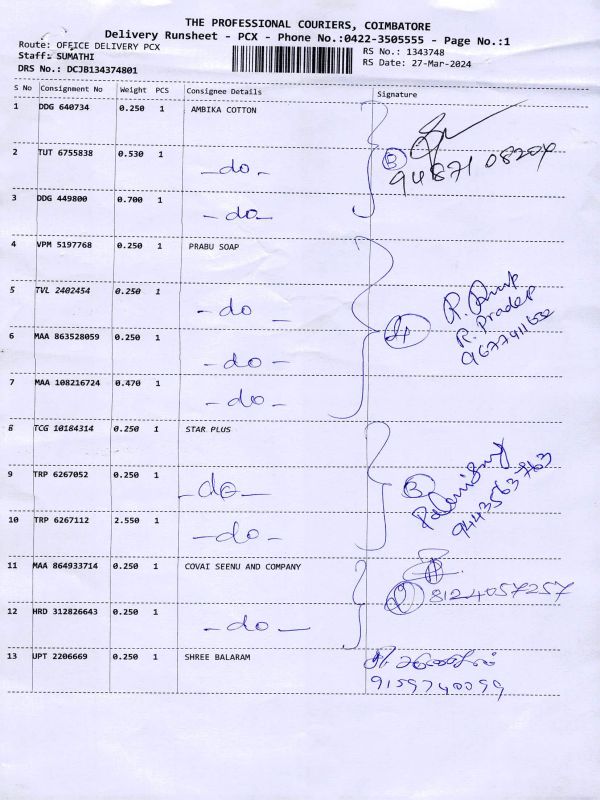 THE PROFESSIONAL COURIERS, COIMBATORE
Delivery Runsheet - PCX - Phone No.:0422-3505555 - Page No.:1
Route: OFFICE DELIVERY PCX
Staff: SUMATHI
DRS No.: DCJB134374801
RS No.: 1343748
RS Date: 27-Mar-2024
S No Consignment No Weight PCS Consignee Details Signature
1 DDG 640734 0.250 1 AMBIKA COTTON
2 TUT 6755838 0.530 1 -do-
3 DDG 449800 0.700 1 -do-
3
94871 08204
4 VPM 5197768 0.250 1 PRABU SOAP
5 TVL 2402454 0.250 1 -do-
6 MAA 863528059 0.250 1 -do-
7 MAA 108216724 0.470 1 -do-
R. Pradep
8 TCG 10184314 0.250 1 STAR PLUS
9 TRP 6267052 0.250 1 -do-
10 TRP 6267112 2.550 1 -do-
3
9443563763
11 MAA 864933714 0.250 1 COVAI SEENU AND COMPANY
12 HRD 312826643 0.250 1 -do-
2 8124057257
13 UPT 2206669 0.250 1 SHREE BALARAM
9159740099